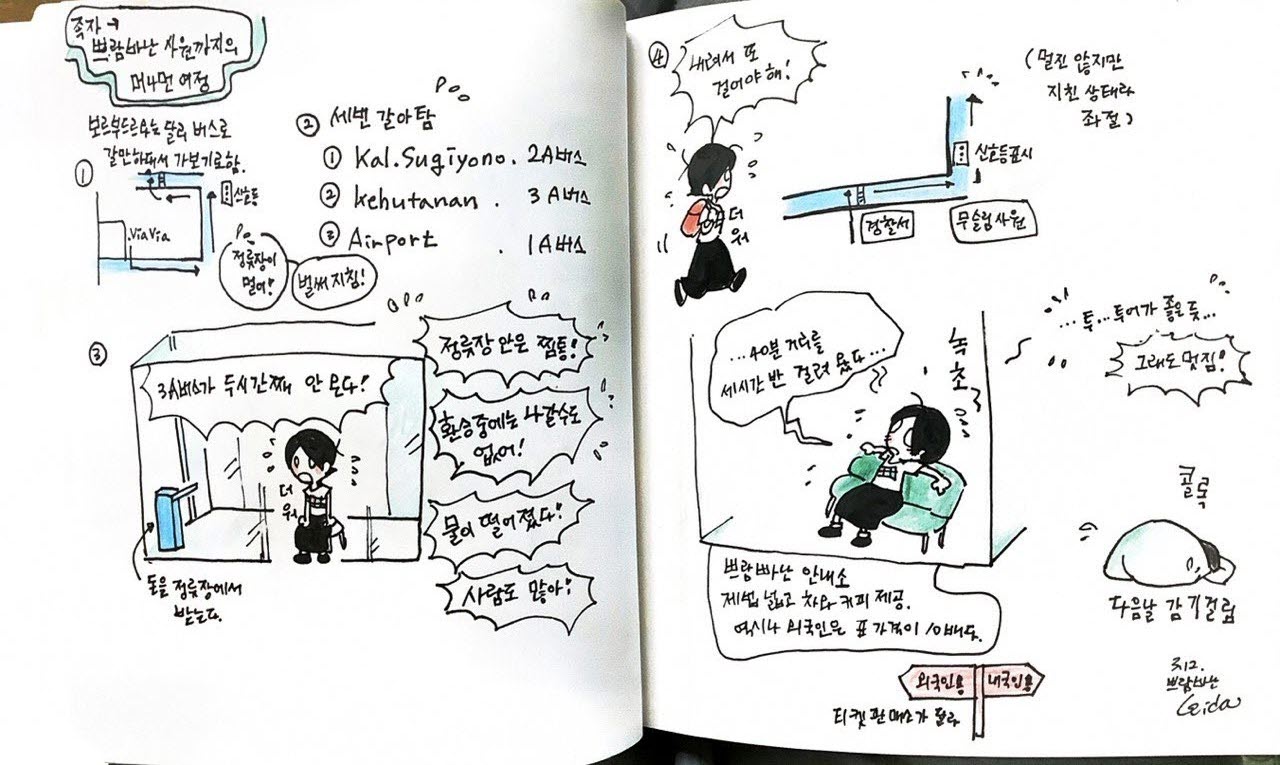 족자 →
쁘람바난 사원까지의
머나먼 여정
보르부드르와는 달리 버스로
갈만하대서 가보기로함.
①
신호등
ViaVia
정류장이
멀어!
벌써 지침!
② 세번 갈아탐
① Kal.Sugiyono. 2A버스
② kehutanan. 3A버스
③ Airport. 1A버스
③
3A버스가 두시간째 안 온다!
더워
돈을 정류장에서
받는다.
정류장 안은 찜통!
환승중에는 나갈수도
없어!
물이 떨어졌다!
사람도 많아!
④
내려서 또
걸어야 해!
더워
(멀진 않지만
지친 상태라
좌절)
신호등표시
경찰서
무슬림사원
...40분 거리를
세시간 반 걸려 왔다...
녹초
...투...투어가 좋을 듯...
그래도 멋짐!
쁘람빠난 안내소
제법 넓고 차와 커피 제공.
역시나 외국인은 표 가격이 10배다.
외국인용
내국인용
티켓 판매소가 달라
콜록
다음날 감기걸림
3.12.
쁘람바난
Leida